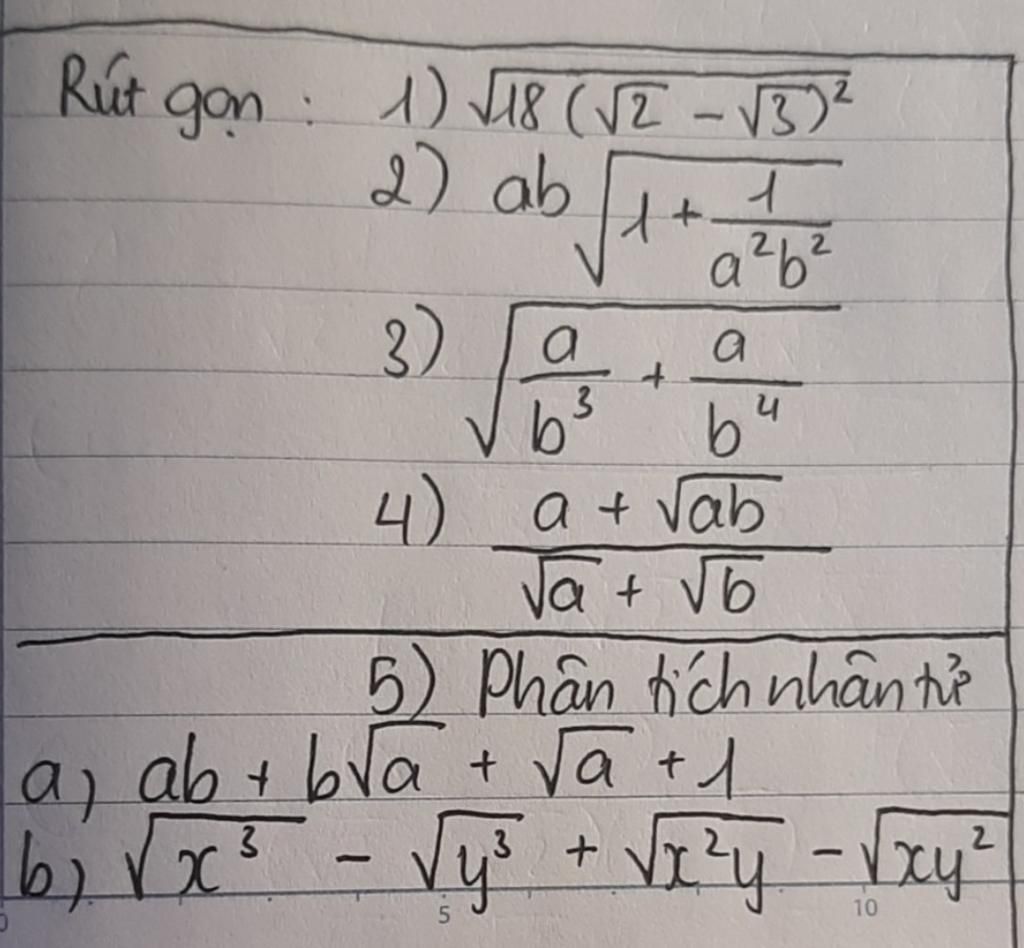 Rút gọn : 1) √(18(√2 - √3)²)
2) ab √(1 + 1/(a²b²))
3) √(a/b³ + a/b⁴)
4) (a + √(ab))/(√a + √b)
5) Phân tích nhân tử
a) ab + b√a + √a + 1
b) √(x³) - √(y³) + √(x²y) - √(xy²)
5 10